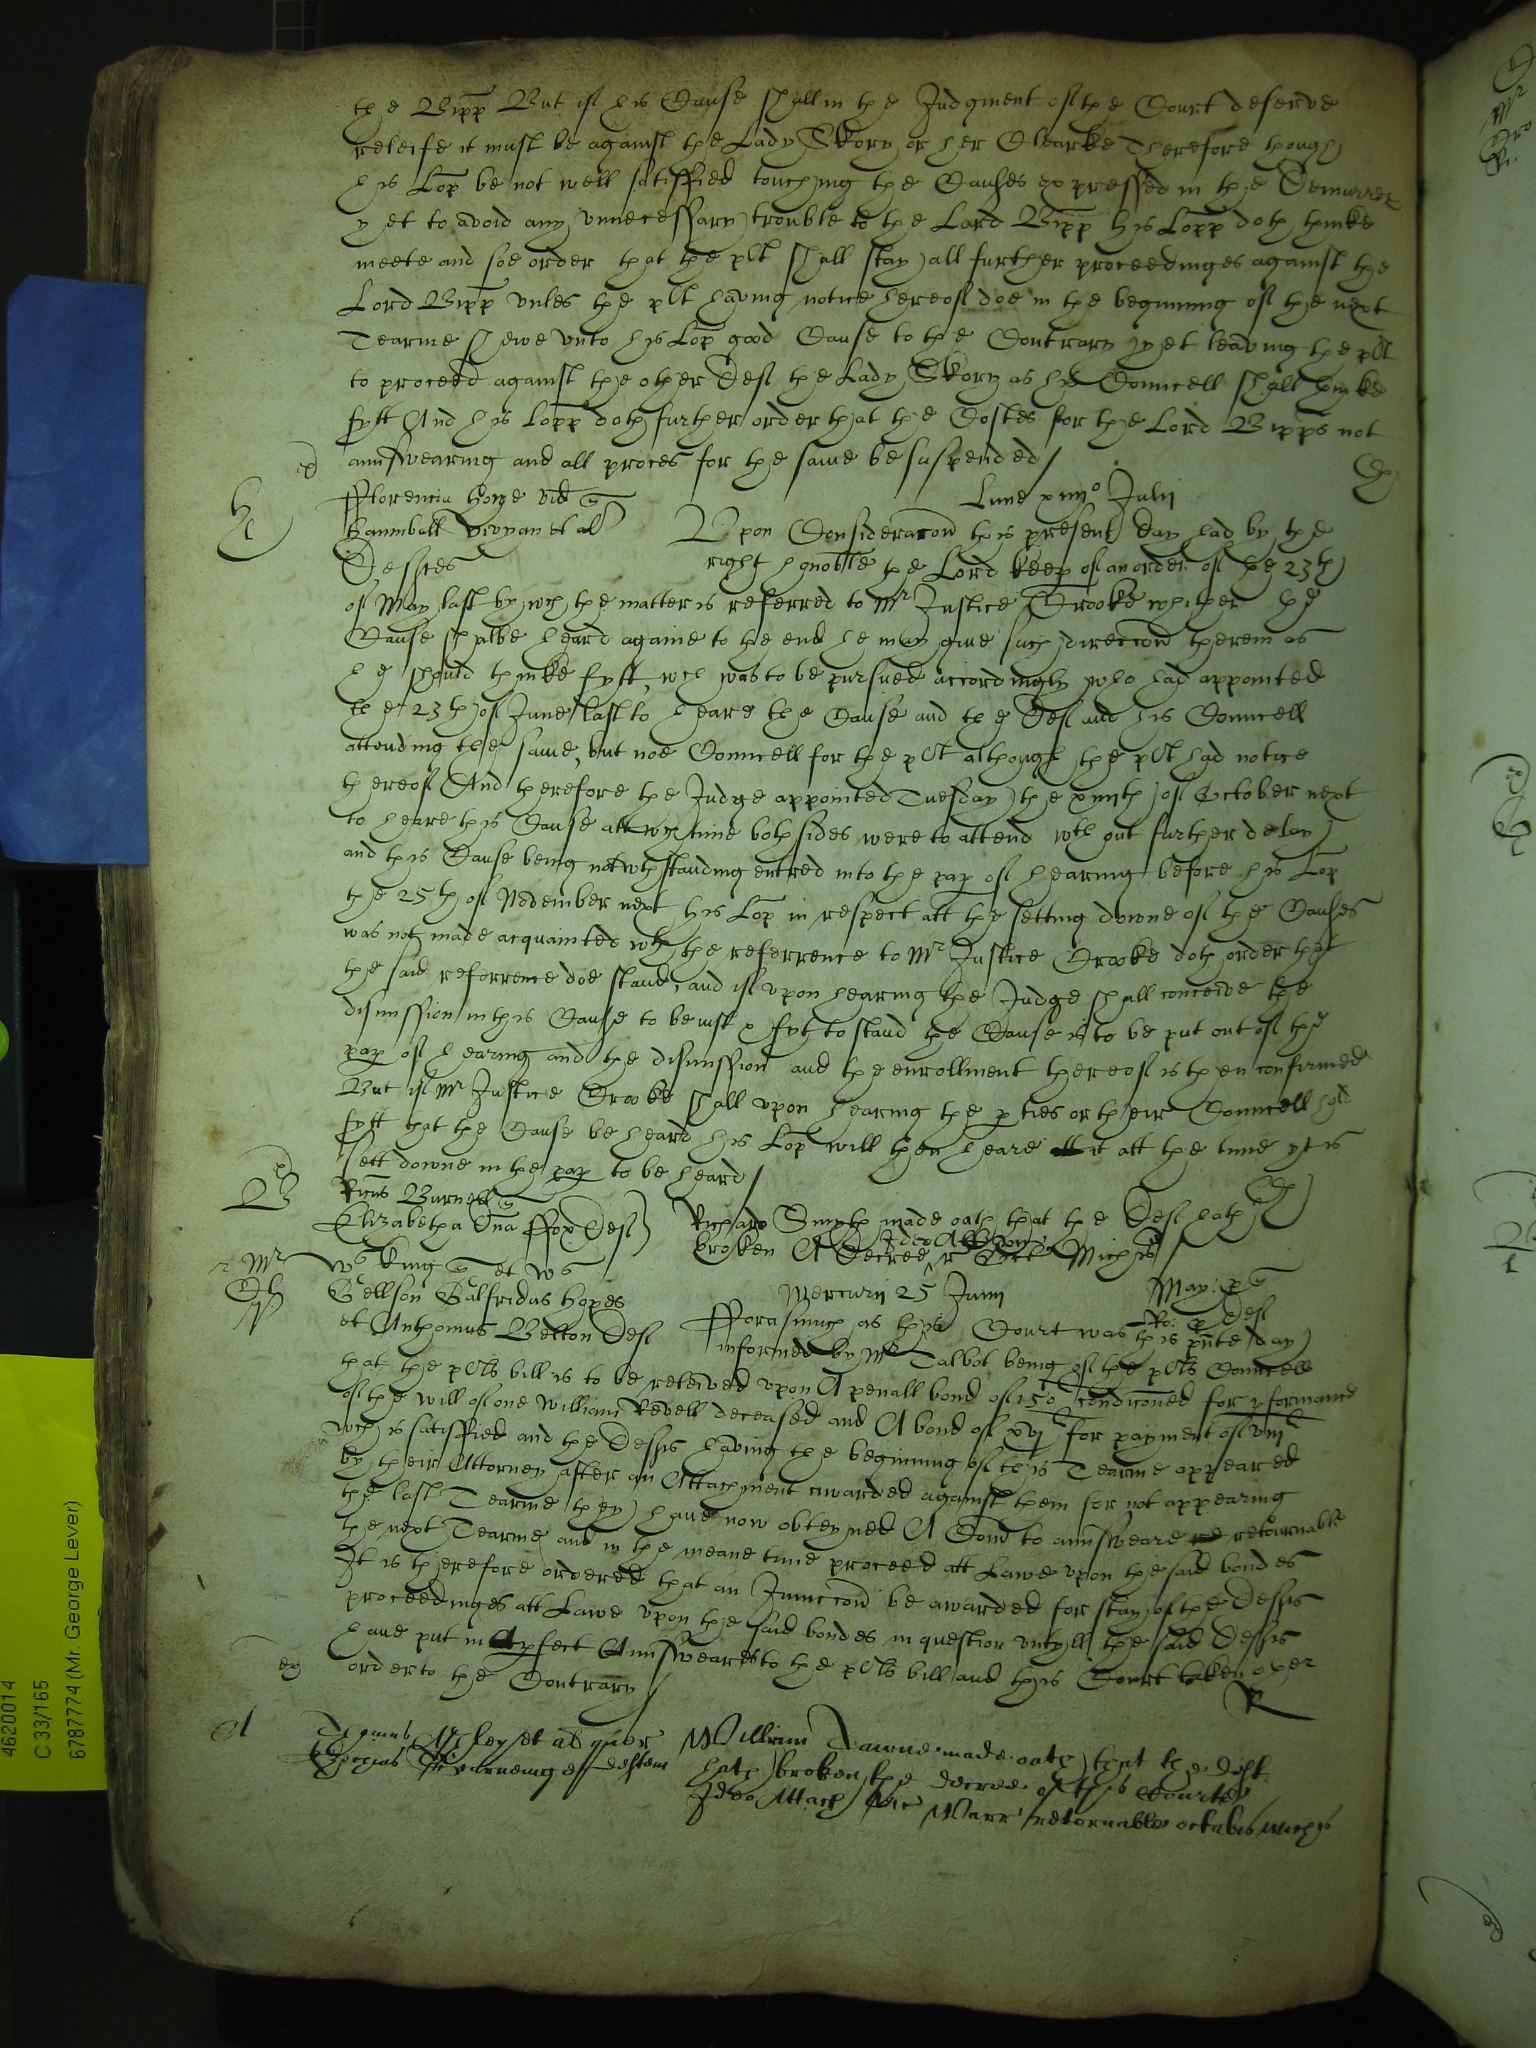 the Bipp But if his Cause shall in the Judgment of the Court deserve
releife it must be against the Lady Skory or her Clearke Therefore though
his Lop be not well satisffied touching the Causes expressed in the Demurrer
yet to avoid any vnnecessary trouble to the Lord Bipp his Lopp doth thinke
meete and soe order that the plt shall stay all further proceedinges against the
Lord Bipp vnles the plt having notice hereof doe in the beginning of the next
Tearme shewe vnto his Lop good Cause to the Contrary yet leaving the plt
to proceed against the other Def the Lady Skory as his Councell shall thinke
fytt And his Lopp doth further order that the Costes for the Lord Bipps not
aunswearing and all proces for the same be suspended
Florencia vid
Lune xiiijo Julij
Hannball Vivyan et al
Vpon Consideracon this present day had by the
Defftes
right honoble the Lord keep of an order of the 23th
of May last by wch the matter is referred to Mr Justice Crooke whither the
Cause shalbe heard againe to the end he may give such direccon therein as
he should thinke fytt, wch was to be pursued accordingly who had appointed
the 23th of June last to heare the Cause and the Def and his Councell
attending the same, but noe Councell for the plt although the plt had notice
thereof And therefore the Judge appointed Tuesday the xiiijth of October next
to heare this Cause att wch time both sides were to attend wth out further delay
and this Cause being notwthstanding entred into the pap of hearing before his Lop
the 25th of November next his Lop in respect att the setting downe of the Causes
was not made acquainted wth the referrence to Mr Justice Crooke doth order that
the said referrence doe stand, and if vpon hearing the Judge shall conceive the
dismission in this Cause to be iust & fytt to stand the Cause is to be put out of the
pap of hearing and the dismission and the enrollment thereof is then confirmed
But if Mr Justice Crooke shall vpon hearing the pties or their Councell hold
fytt that the Cause be heard his Lop will then heare it att the time yt is
sett downe in the pap to be heard
Ricus Burnell
Elizabetha Dna Fox Def
Richard Smyth made oath that the Def hath
broken A Decree Michis
Wo King et
Mercurij 25 Junij
May: p
Gellson Galfridus Hopes
Ro: Def
et Anthonius Betton Def
Forasmuch as this Court was this pnte day
informed by Mr Talbot being of the plts Councell
that the plts bill is to be releived vpon A penall bond of 150l condiconed for pformance
of the will of one William Revell deceased and A bond of xvjl for payment of viijl
wch is satisffied and the Deffts having the beginning of this Tearme appeared
by their Attorney after an Attachment awarded against them for not appearing
the last Tearme they have now obteyned A Comd to aunsweare retournable
the next Tearme and in the meane time proceed att Lawe vpon the said bondes
It is therefore ordered that an Iniuccon be awarded for stay of the Deffts
proceedinges att Lawe vpon the said bondes in question vntyll the said Deffts
have put in A pfect Aunsweare to the plts bill and this Court taken other
order to the Contrary
William Dawne made oath that the deft
hath broken the decree of this Courte
Ideo Attach vic Warr retornable octabis michis
4620014
C 33/165
6787774 (Mr. George Lever)